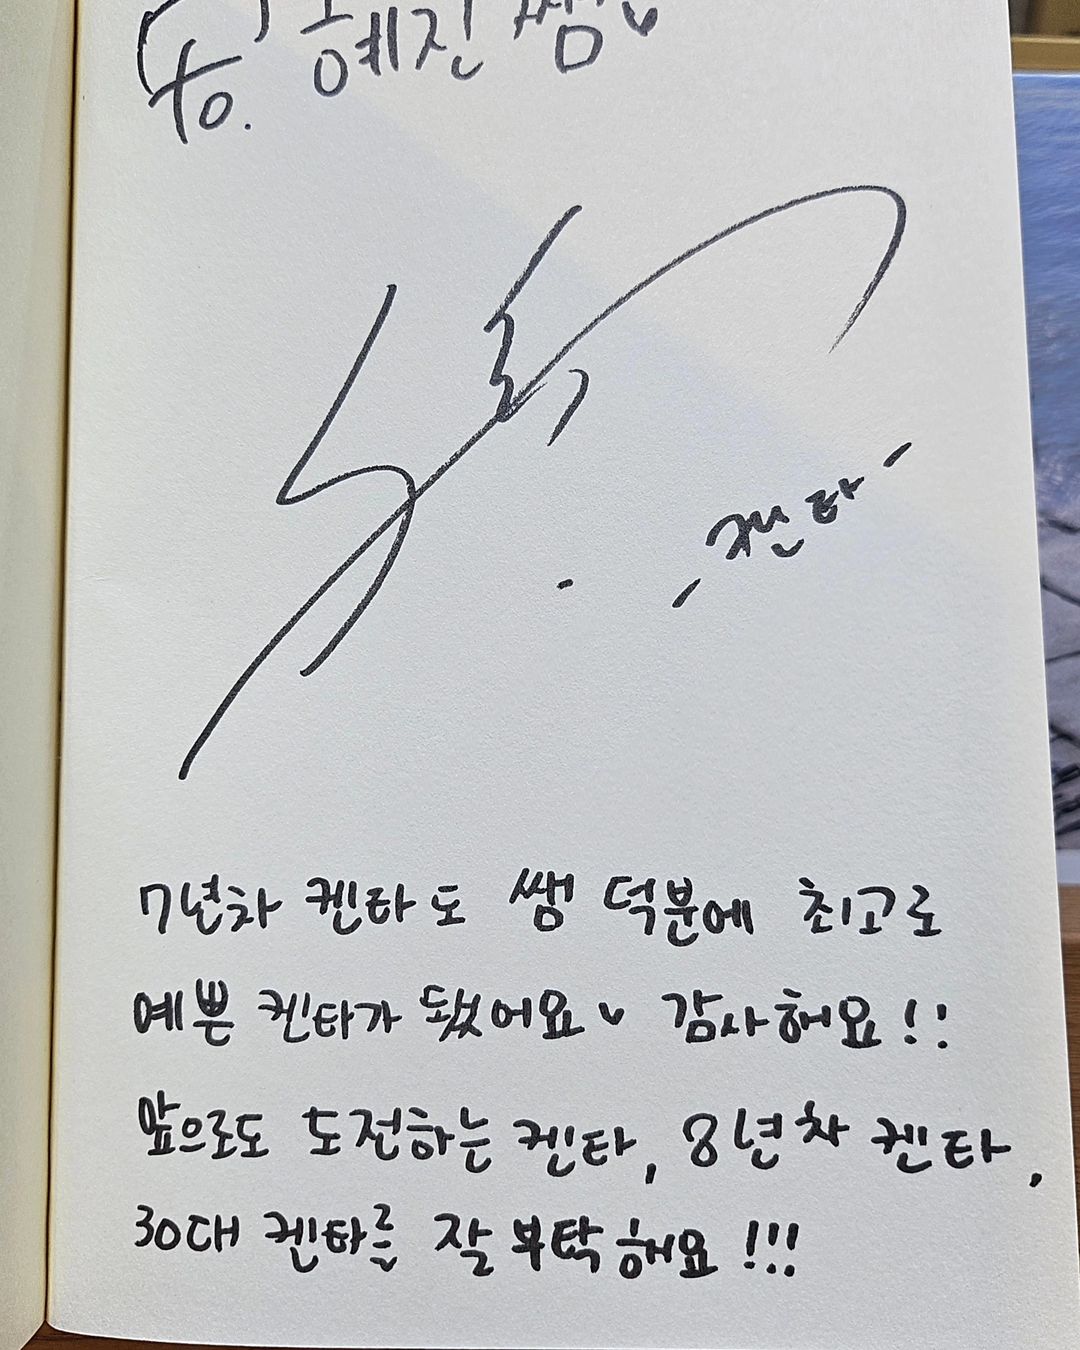 to. 혜진 쌤
-켄타-
7년차 켄타도 쌤 덕분에 최고로
예쁜 켄타가 됐어요 감사해요!!
앞으로도 도전하는 켄타, 8년차 켄타,
30대 켄타를 잘 부탁해요!!!